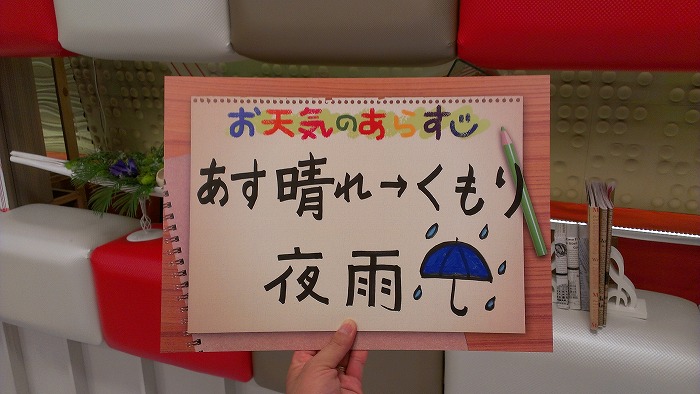 お天気のあらすじ
あす晴れ→くもり
夜雨